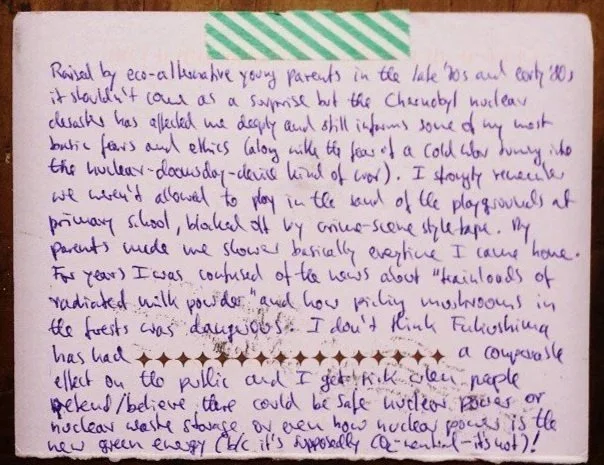 Raised by eco-alternative young parents in the late '70s and early '80s
it shouldn't come as a surprise but the Chernobyl nuclear
desaster has affected me deeply and still informs some of my most
basic fears and ethics (along with the fear of a cold war turning into
the nuclear-doomsday-device kind of war). I strongly remember
we weren't allowed to play in the sand of the playgrounds at
primary school, blocked off by crime-scene style tape. My
parents made me shower basically everytime I came home.
For years I was confused of the news about "trainloads of
radiated milk powder" and how picking mushrooms in
the forests was dangerous. I don't think Fukushima
has had a comparable
effect on the public and I get sick when people
pretend/believe there could be safe nuclear power or
nuclear waste storage or even how nuclear power is the
new green energy (b/c it's supposedly CO2-neutral-it's not)!